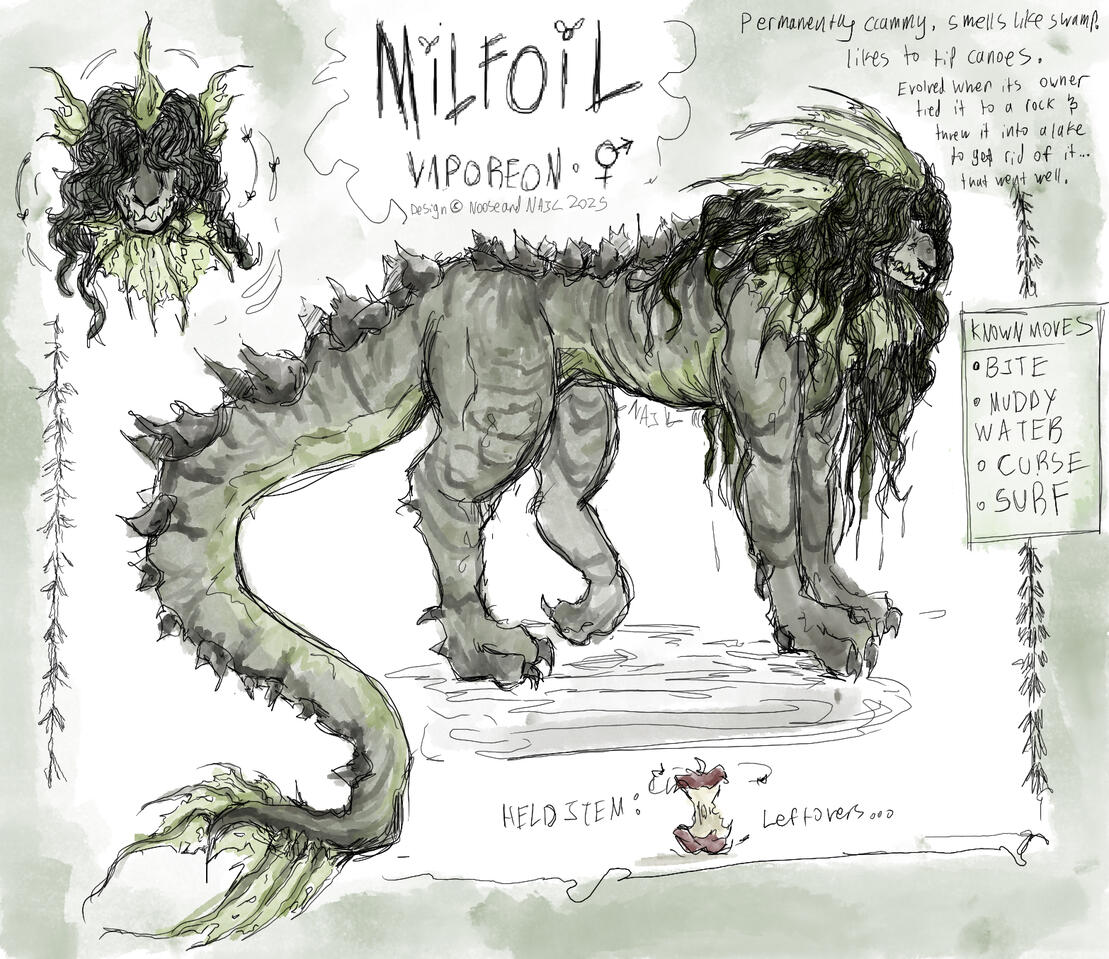 MiLFOiL
VAPOREON · ⚥
Design © Noose and NAJL 2025
Permanently clammy, smells like swamp.
likes to tip canoes.
Evolved when its owner
tied it to a rock &
threw it into a lake
to get rid of it...
that went well.
KNOWN MOVES
• BITE
• MUDDY
WATER
• CURSE
• SURF
NAJL
HELD ITEM:
Leftovers...